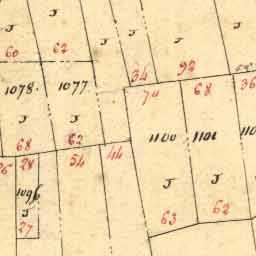 J
J
J
60
62
34
92
1078.
1077
74
68
36
J
J
68
62
1100
1101
110
28
54
44
J
J
1096
J
27
63
62